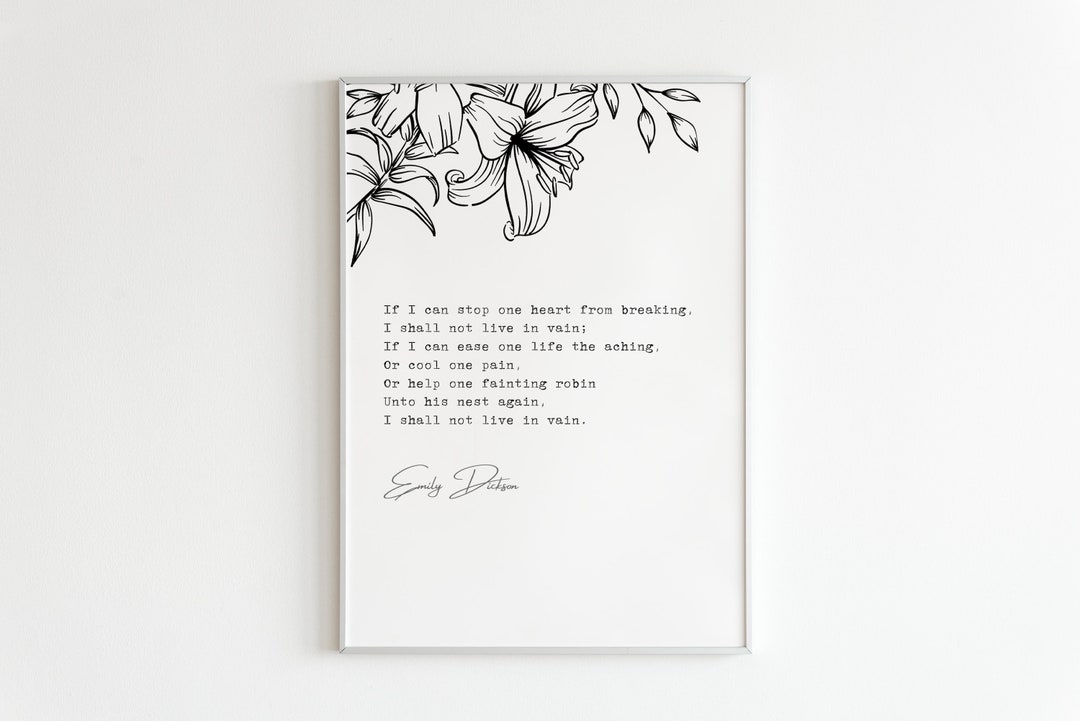 If I can stop one heart from breaking,
I shall not live in vain;
If I can ease one life the aching,
Or cool one pain,
Or help one fainting robin
Unto his nest again,
I shall not live in vain.
Emily Dickson